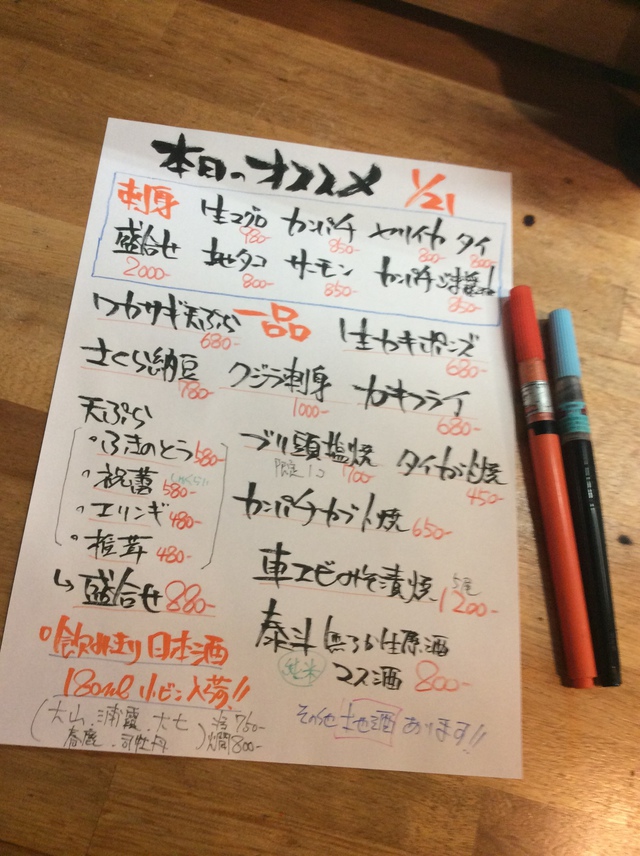 本日のオススメ 1/21
刺身 生マグロ 980- カンパチ 850- ヤリイカ 800- タイ 800-
盛合せ 2000- 地タコ 800- サーモン 850- カンパチ 850-
ワカサギ天ぷら 680- 一品 生カキポン酢 680-
さくら納豆 780- クジラ刺身 1000- カキフライ 680-
天ぷら
・ふきのとう 580-
・祝蕾 580-
・エリンギ 480-
・椎茸 480-
↳盛合せ 880-
ブリ頭塩焼 限定1コ 700- タイカブト焼 450-
カンパチカブト焼 650-
車エビのみそ漬焼 5尾 1200-
泰斗 無ろか生原酒
純米 マス酒 800-
その他 地酒 あります!!
飲みきり日本酒
180ml 小ビン入荷!!
(大山、浦霞、大七 春鹿、司牡丹) 冷750- 燗800-